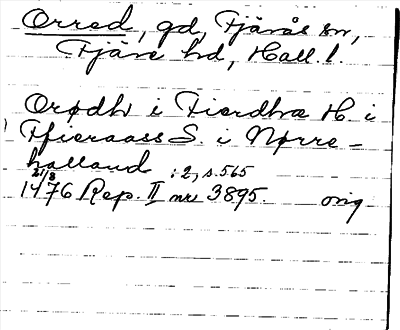 Orred, gd, Fjärås sn,
Fjäre hd, Hall. l.
Orødh i Fierdhæ H. i
Ffieraass S. i Nørre-
halland : 2, s. 565
21/8
1476 Rep. II nr 3895. orig